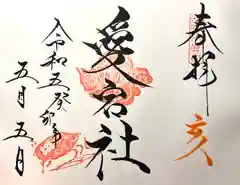 奉拝
亥
愛宕社
令和五癸卯年
五月五日